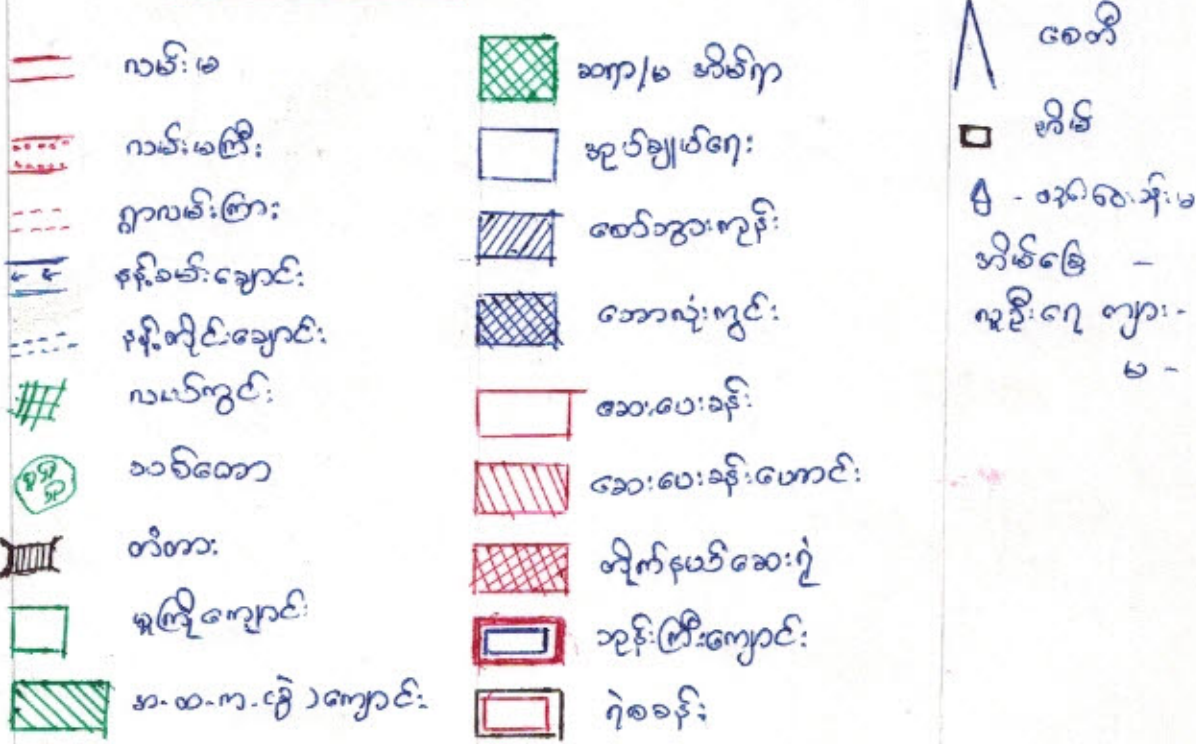 လမ်းမ
လမ်းမကြီး
ရွာလမ်းကြား
နန့်ခမ်းချောင်း
နန့်တိုင်းချောင်း
လယ်ကွင်း
သစ်တော
တံတား
မူကြိုကျောင်း
အ.ထ.က.(ခွဲ)ကျောင်း
ဆရာ/မ အိမ်ရာ
အုပ်ချုပ်ရေး
စော်ဘွားကုန်း
ဘောလုံးကွင်း
ဆေးပေးခန်း
ဆေးပေးခန်းဟောင်း
တိုက်နယ်ဆေးရုံ
ဘုန်းကြီးကျောင်း
ရဲစခန်း
စေတီ
အိမ်
အိမ်ခြေ -
လူဦးရေ ကျား -
မ -